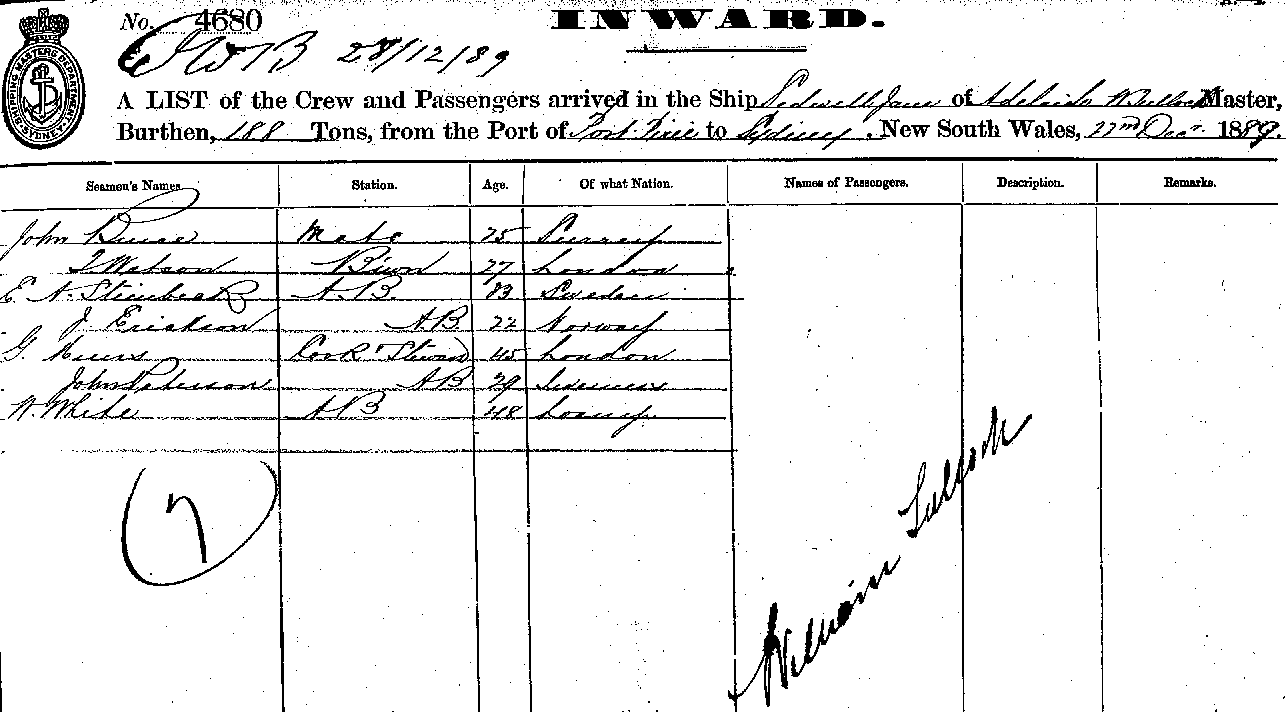 No. 4680
INWARD.
28/12/89
SHIPPING MASTERS DEPARTMENT SYDNEY
A LIST of the Crew and Passengers arrived in the Ship Sedwell Jane of Adelaide W Master,
Burthen, 188 Tons, from the Port of Port Pirie to Sydney, New South Wales, 27th Decr 1889.
Seamen's Names. Station. Age. Of what Nation. Names of Passengers. Description. Remarks.
John Mate 25 Surrey
Watson 27 London
E A. Steinbeck A.B. Sweden
J. Erickson AB 22 Norway
G Cook & Steward 45 London
John Peterson AB 29
W. White AB 48
7
William